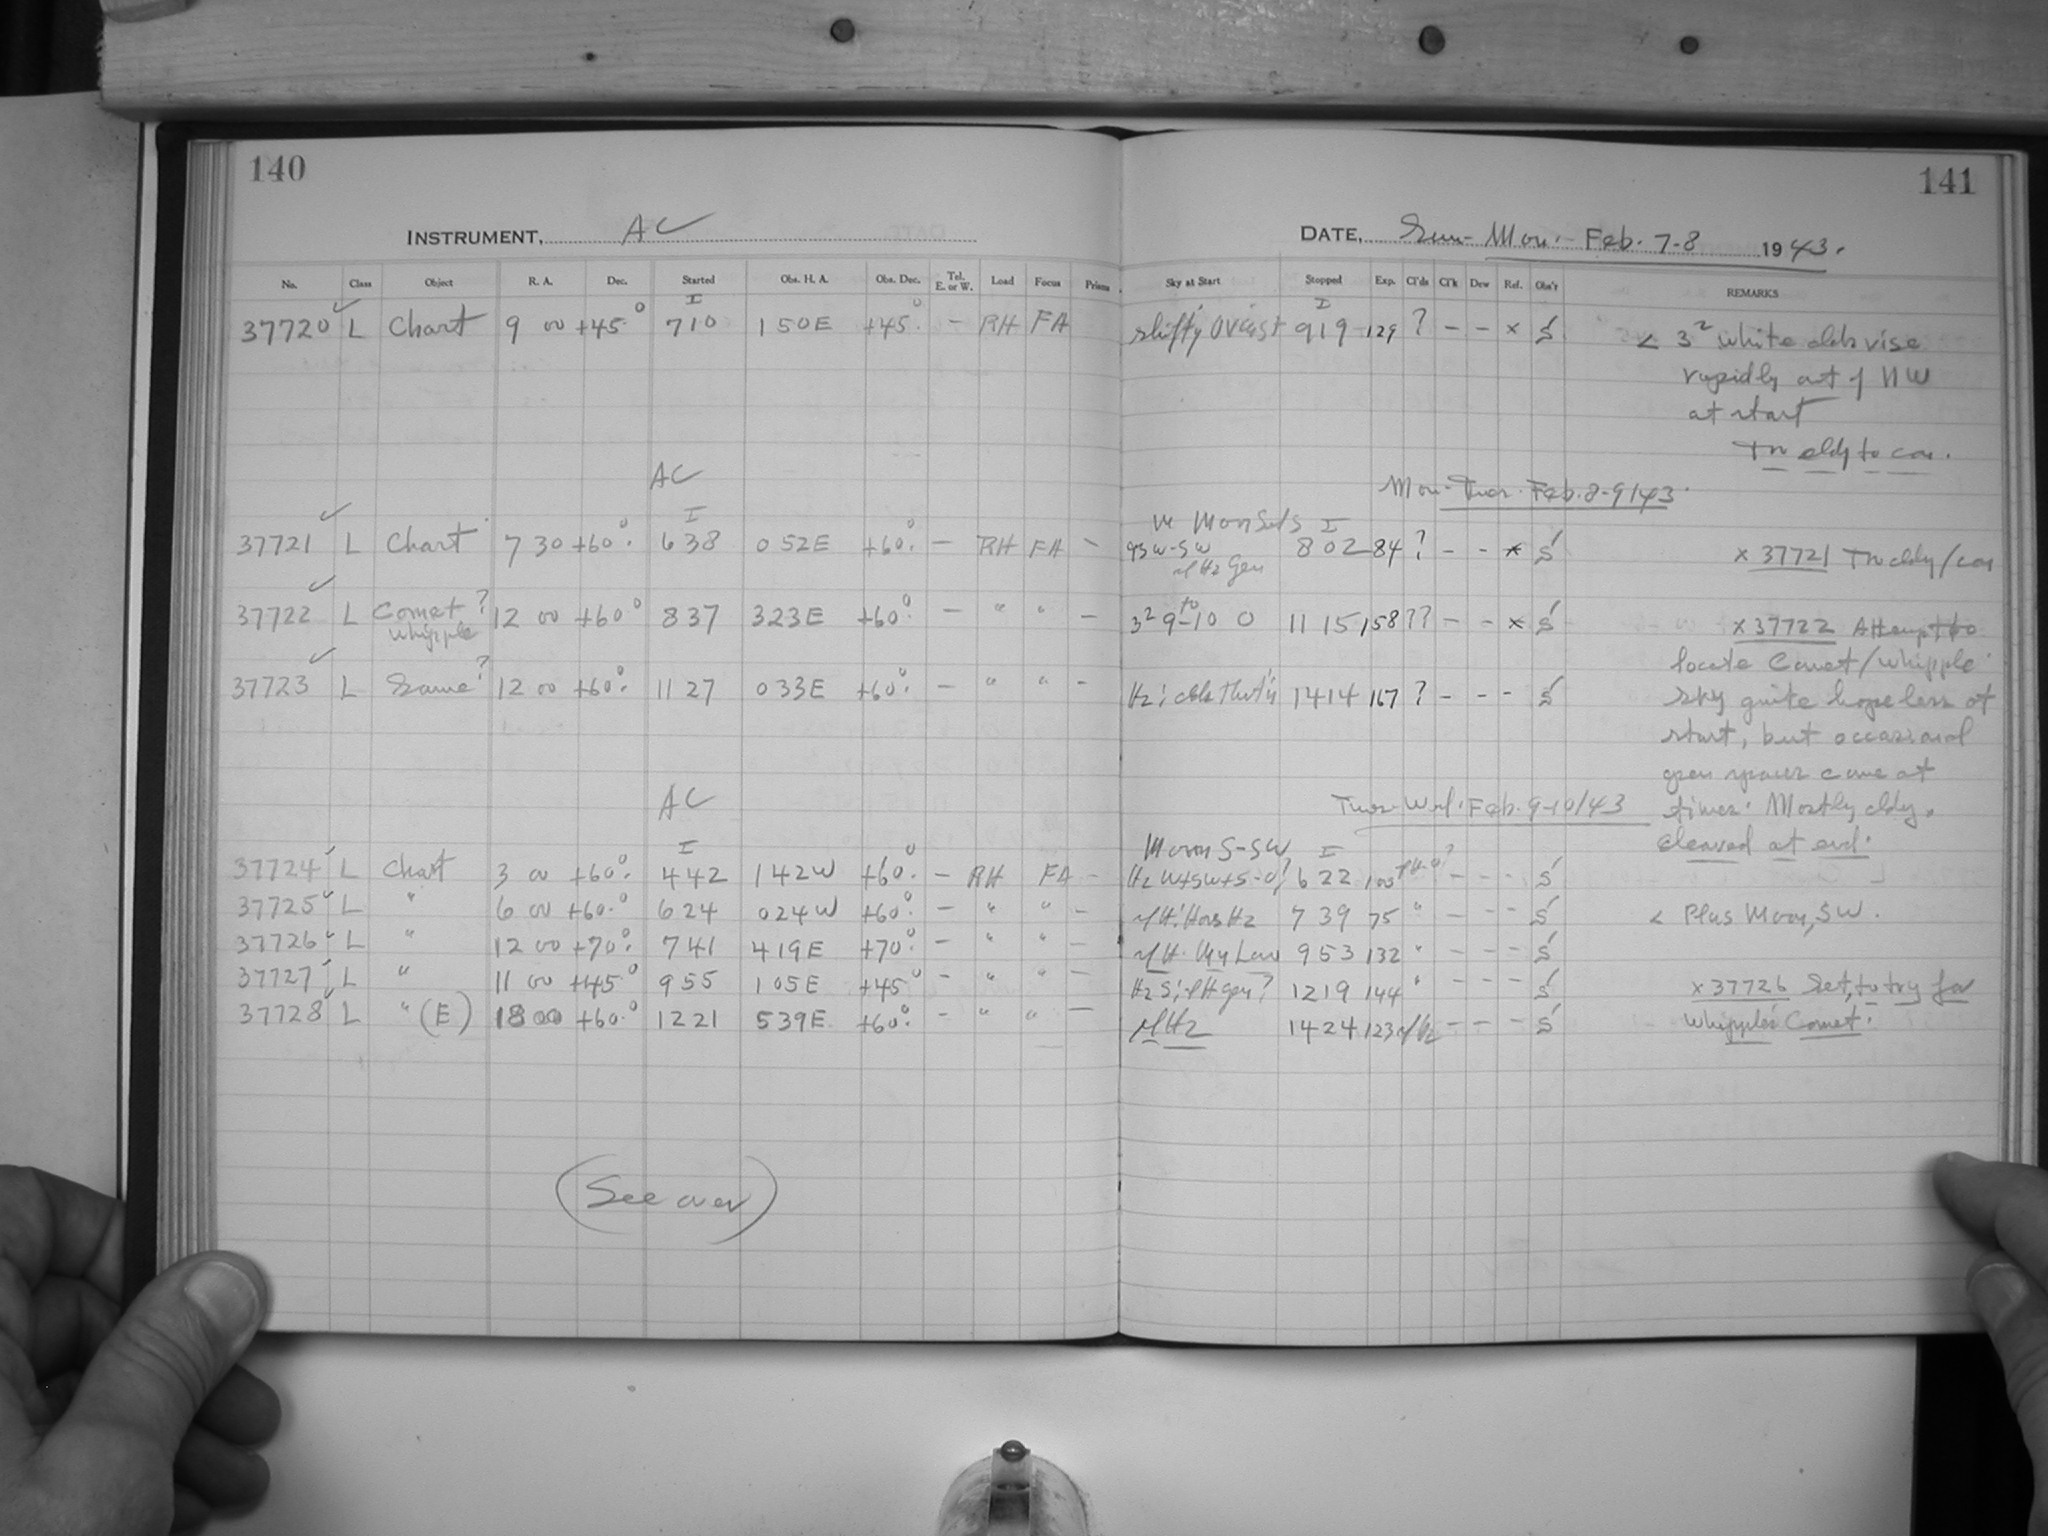 140
141
INSTRUMENT, AC
DATE, Sun-Mon. Feb. 7-8 1943.
No. Class Object R. A. Dec. Started Obs. H. A. Obs. Dec. Tel. E. or W. Load Focus Prisms Sky at Start Stopped Exp. Cl'ds Cl'k Dew Ref. Obs'r REMARKS
I I
37720 ✓ L Chart 9 00 +45.° 710 150E +45.° - RH FA shifty Ovcast 919 129 ? - - x S' < 3² white clds rise
rapidly out of NW
at start
Tn cldy to con.
AC
Mon-Tues. Feb. 8-9/43.
I Moon Sets I
37721 ✓ L Chart 7 30 +60.° 638 052E +60.° - RH FA - 802 84 ? - - x S' x 37721 Tn cldy/con
37722 ✓ L Comet? Whipple 12 00 +60° 837 323E +60.° - " " - 3² 9 to 10 O 11 15 158 ?? - - x S' x 37722 Attempt to
locate Comet/Whipple
37723 ✓ L Same? 12 00 +60.° 11 27 033E +60.° - " " - 1414 167 ? - - - S' sky quite hopeless at
start, but occasional
open spaces came at
AC
Tues-Wed. Feb. 9-10/43
times. Mostly cldy.
cleared at end.
I Moon S-SW I
37724 ✓ L Chart 3 00 +60.° 442 142W +60.° - RH FA - Hz W+SW+S-O? 622 100 - - - S'
37725 ✓ L " 6 00 +60.° 624 024W +60.° - " " - 739 75 " - - - S' < Plus Moon, SW.
37726 ✓ L " 12 00 +70.° 741 419E +70.° - " " - 953 132 " - - - S'
37727 ✓ L " 11 00 +45° 955 105E +45° - " " - 1219 144 " - - - S' x 37726 Set, to try for
37728 ✓ L " (E) 18 00 +60.° 1221 539E +60.° - " " - 1424 123 - - - S' Whipple's Comet.
(See over)